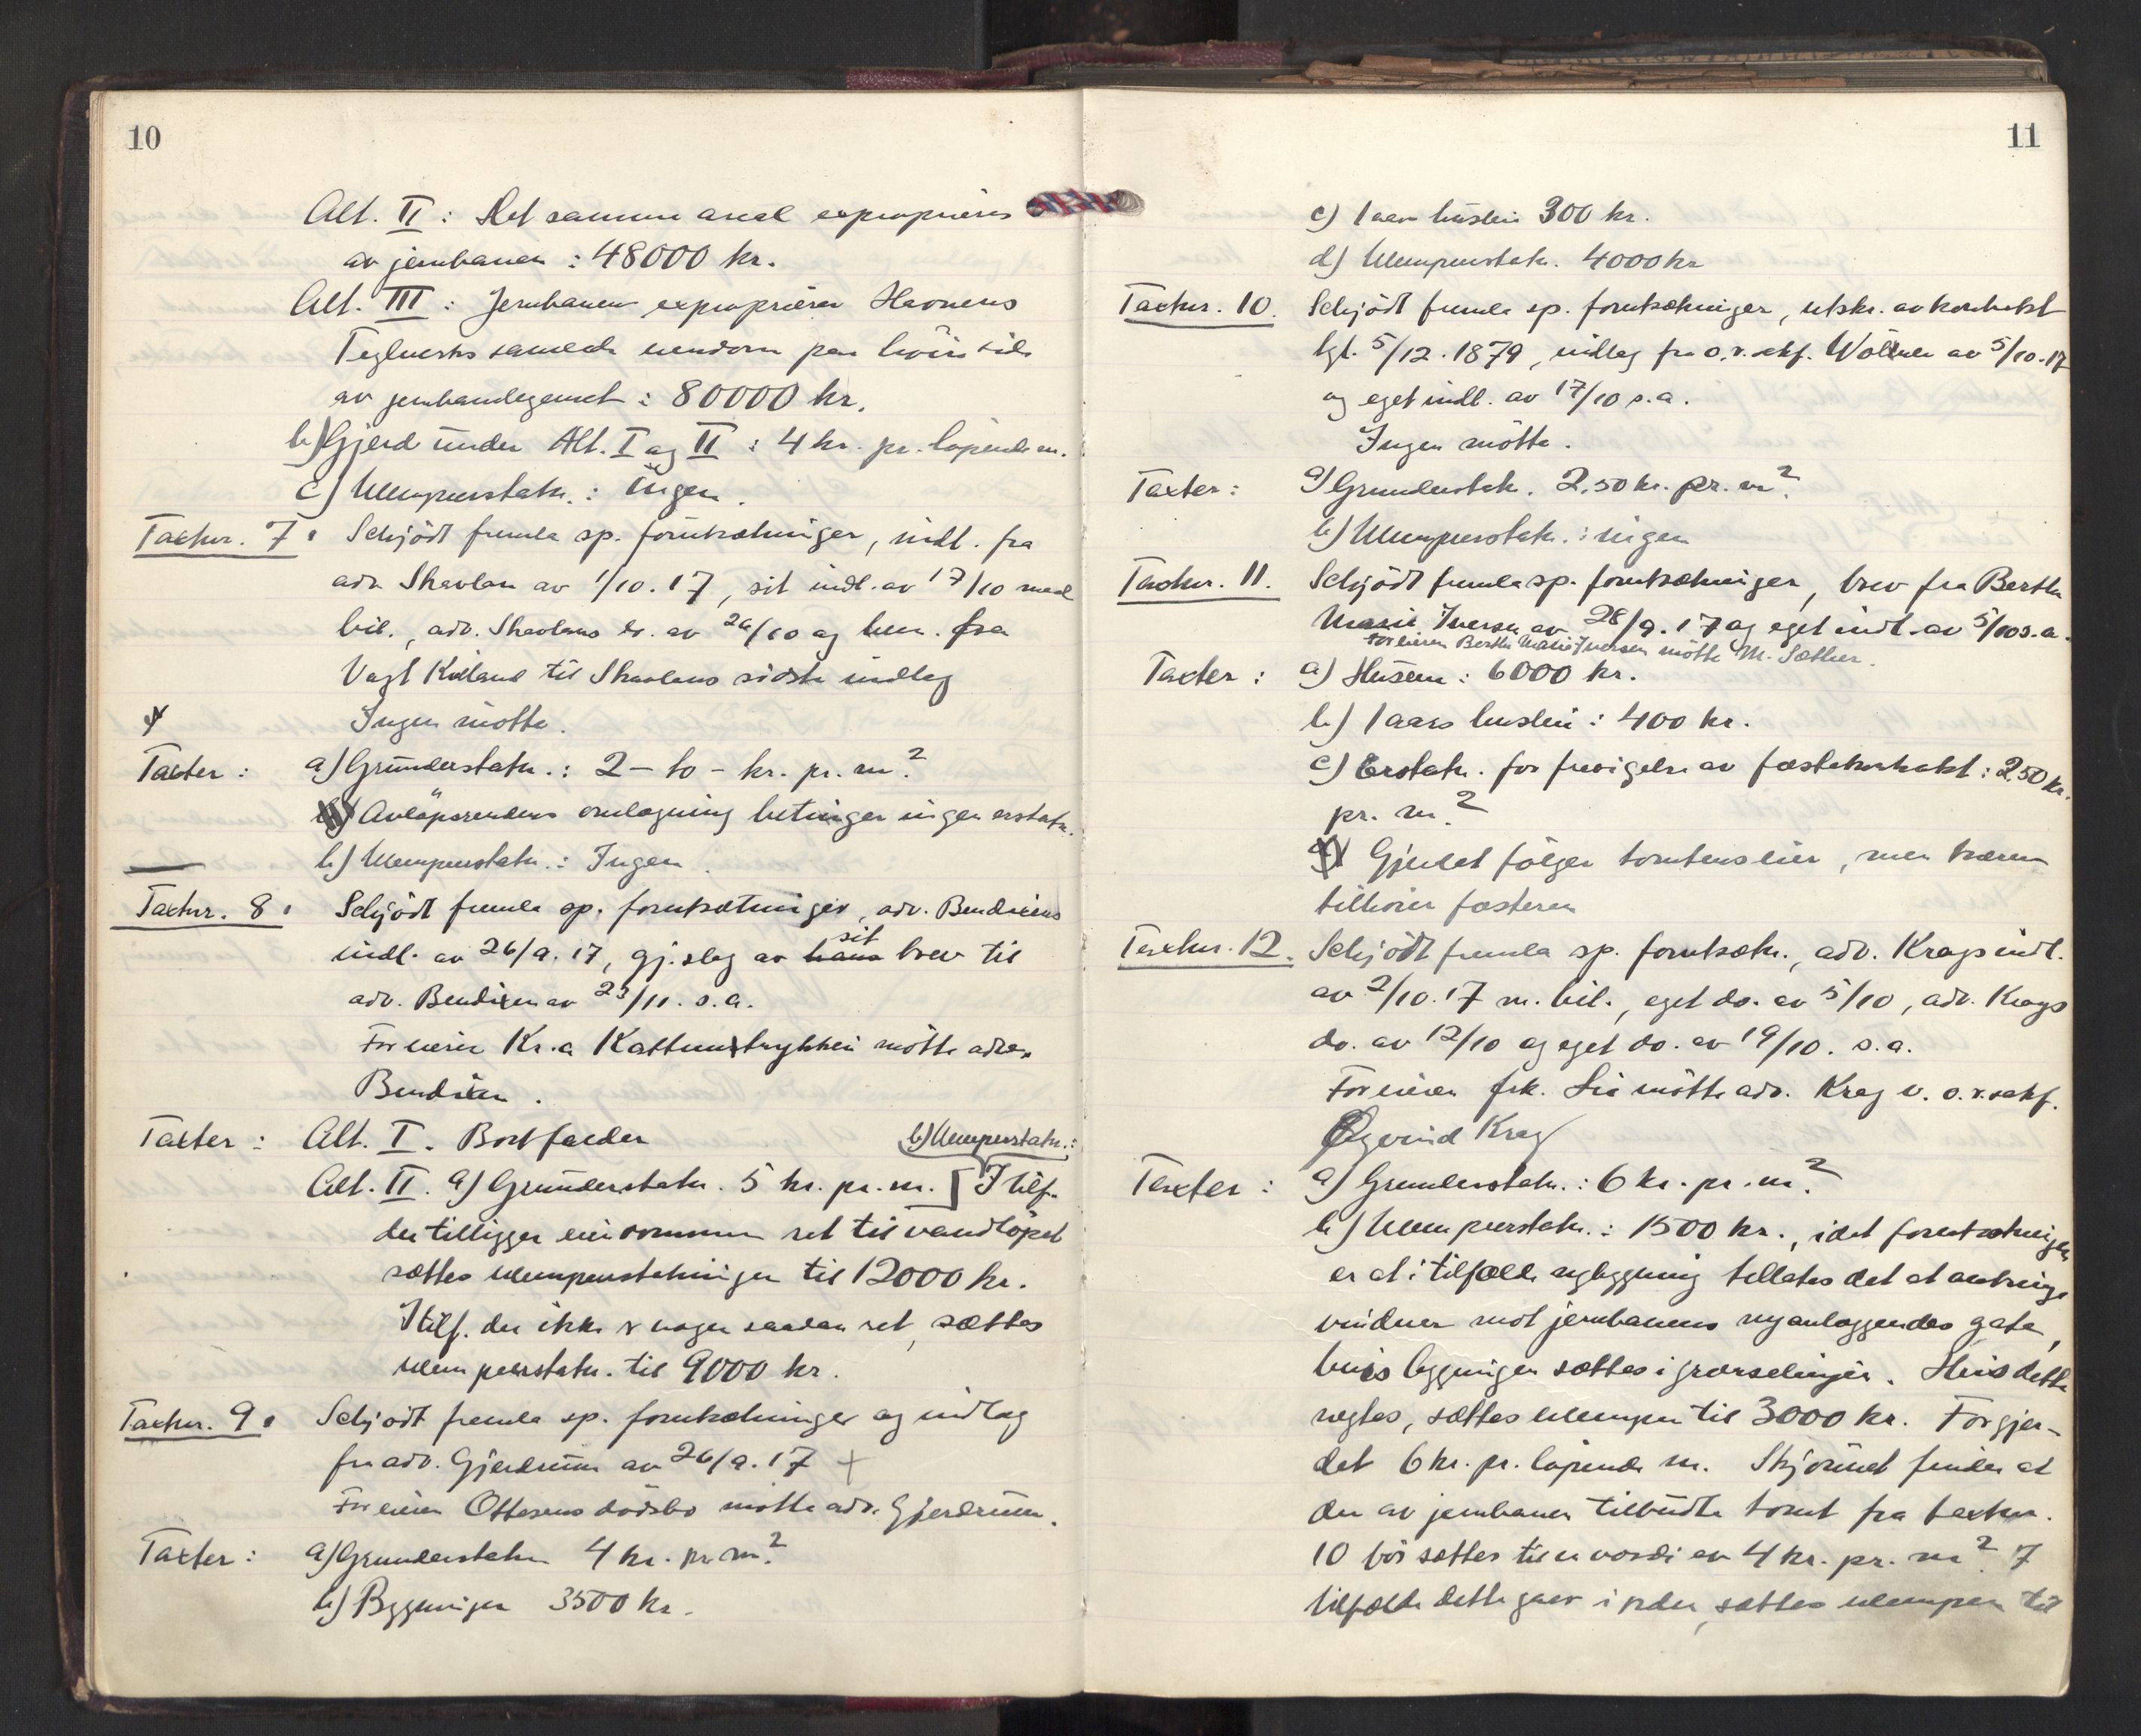 10
Alt. II : Det samme areal exproprieres
av jernbanen : 48000 kr.
Alt. III : Jernbanen exproprierer Havnens
Teglverks samlede eiendom paa höire side
av jernbanelegemet : 80000 kr.
b) Gjerd under Alt. I og II : 4 kr. pr. löpende m.
c) Ulempeerstatn. : ingen.
Taxtnr. 7. Schjödt fremla sp. forutsætninger, indl. fra
adv. Skavlan av 1/10.17, sit indl. av 17/10 med
bil., adv. Skavlans br. av 26/10 og bem. fra
Vagt Kielland til Skavlans sidste indlæg
Ingen mötte.
Taxter : a) Grunderstatn. : 2 – to – kr. pr. m².
Avlöpsrendens omlægning betinger ingen erstatn.
b) Ulempeerstatn. : Ingen.
Taxtnr. 8. Schjödt fremla sp. forutsætninger, adv. Bendixens
indl. av 26/9. 17, gj.slag av hans sit brev til
adv. Bendixen av 23/11. s.a.
For eieren Kr.a Kattuntrykkeri mötte adv.
Bendixen.
Taxter : Alt. I. Bortfalder
b) Ulempeerstatn. :
Alt. II. a) Grunderstatn. 5 kr. pr. m. [ I tilf.
der tilligger eiendommen ret til vandlöpet
sættes ulempeerstatningen til 12000 kr.
I tilf. der ikke er nogen saadan ret, sættes
ulempeerstatn. til 9000 kr.
Taxtnr. 9. Schjödt fremla sp. forutsætninger og indlæg
fra adv. Gjerdrum av 26/9. 17 +
For eieren Ottesens dödsbo mötte adv. Gjerdrum.
Taxter : a) Grunderstatn 4 kr. pr m².
b) Bygninger 3500 kr.
11
c) 1 aars husleie 300 kr.
d) Ulempeerstatn. 4000 kr
Taxtnr. 10. Schjödt fremla sp. forutsætninger, utskr. av kontrakt
tgl. 5/12. 1879, indlæg fra o.r.sakf. Wöllner av 5/10.17
og eget indl. av 17/10 s.a.
Ingen mötte.
Taxter : a) Grunderstatn. 2.50 kr. pr. m².
b) Ulempeerstatn. : ingen
Taxtnr. 11. Schjödt fremla sp. forutsætninger, brev fra Berthe
Marie Iversen av 28/9. 17 og eget indl. av 5/10 s.a.
For eieren Berthe Marie Iversen mötte M. Sæther.
Taxter : a) Husene : 6000 kr.
b) 1 aars husleie : 400 kr.
c) Erstatn. for frivigelse av fæstekontrakt : 2.50 kr.
pr. m².
Gjerdet fölger tomtens eier, men trærne
tilhörer fæsteren
Taxtnr. 12. Schjödt fremla sp. forutsætn., adv. Krags indl.
av 2/10. 17 m. bil., eget do. av 5/10, adv. Krags
do. av 12/10 og eget do. av 19/10. s.a.
For eieren frk. Lie mötte adv. Krag v. o.r.sakf.
Øyvind Krag
Taxter : a) Grunderstatn. : 6 kr. pr. m².
b) Ulempeerstatn. : 1500 kr., idet forutsætningen
er at i tilfælde nybygning tillates det at anbringe
vinduer mot jernbanens nyanlæggendes gate,
hvis bygningen sættes i grænselinjen. Hvis dette
negtes, sættes ulempen til 3000 kr. For gjer-
det 6 kr. pr. löpende m. Skjönnet finder at
den av jernbanen tilbudte tomt fra taxtnr.
10 bör sættes til en værdi av 4 kr. pr. m². I
tilfælde dette gaar i orden, sættes ulempen til